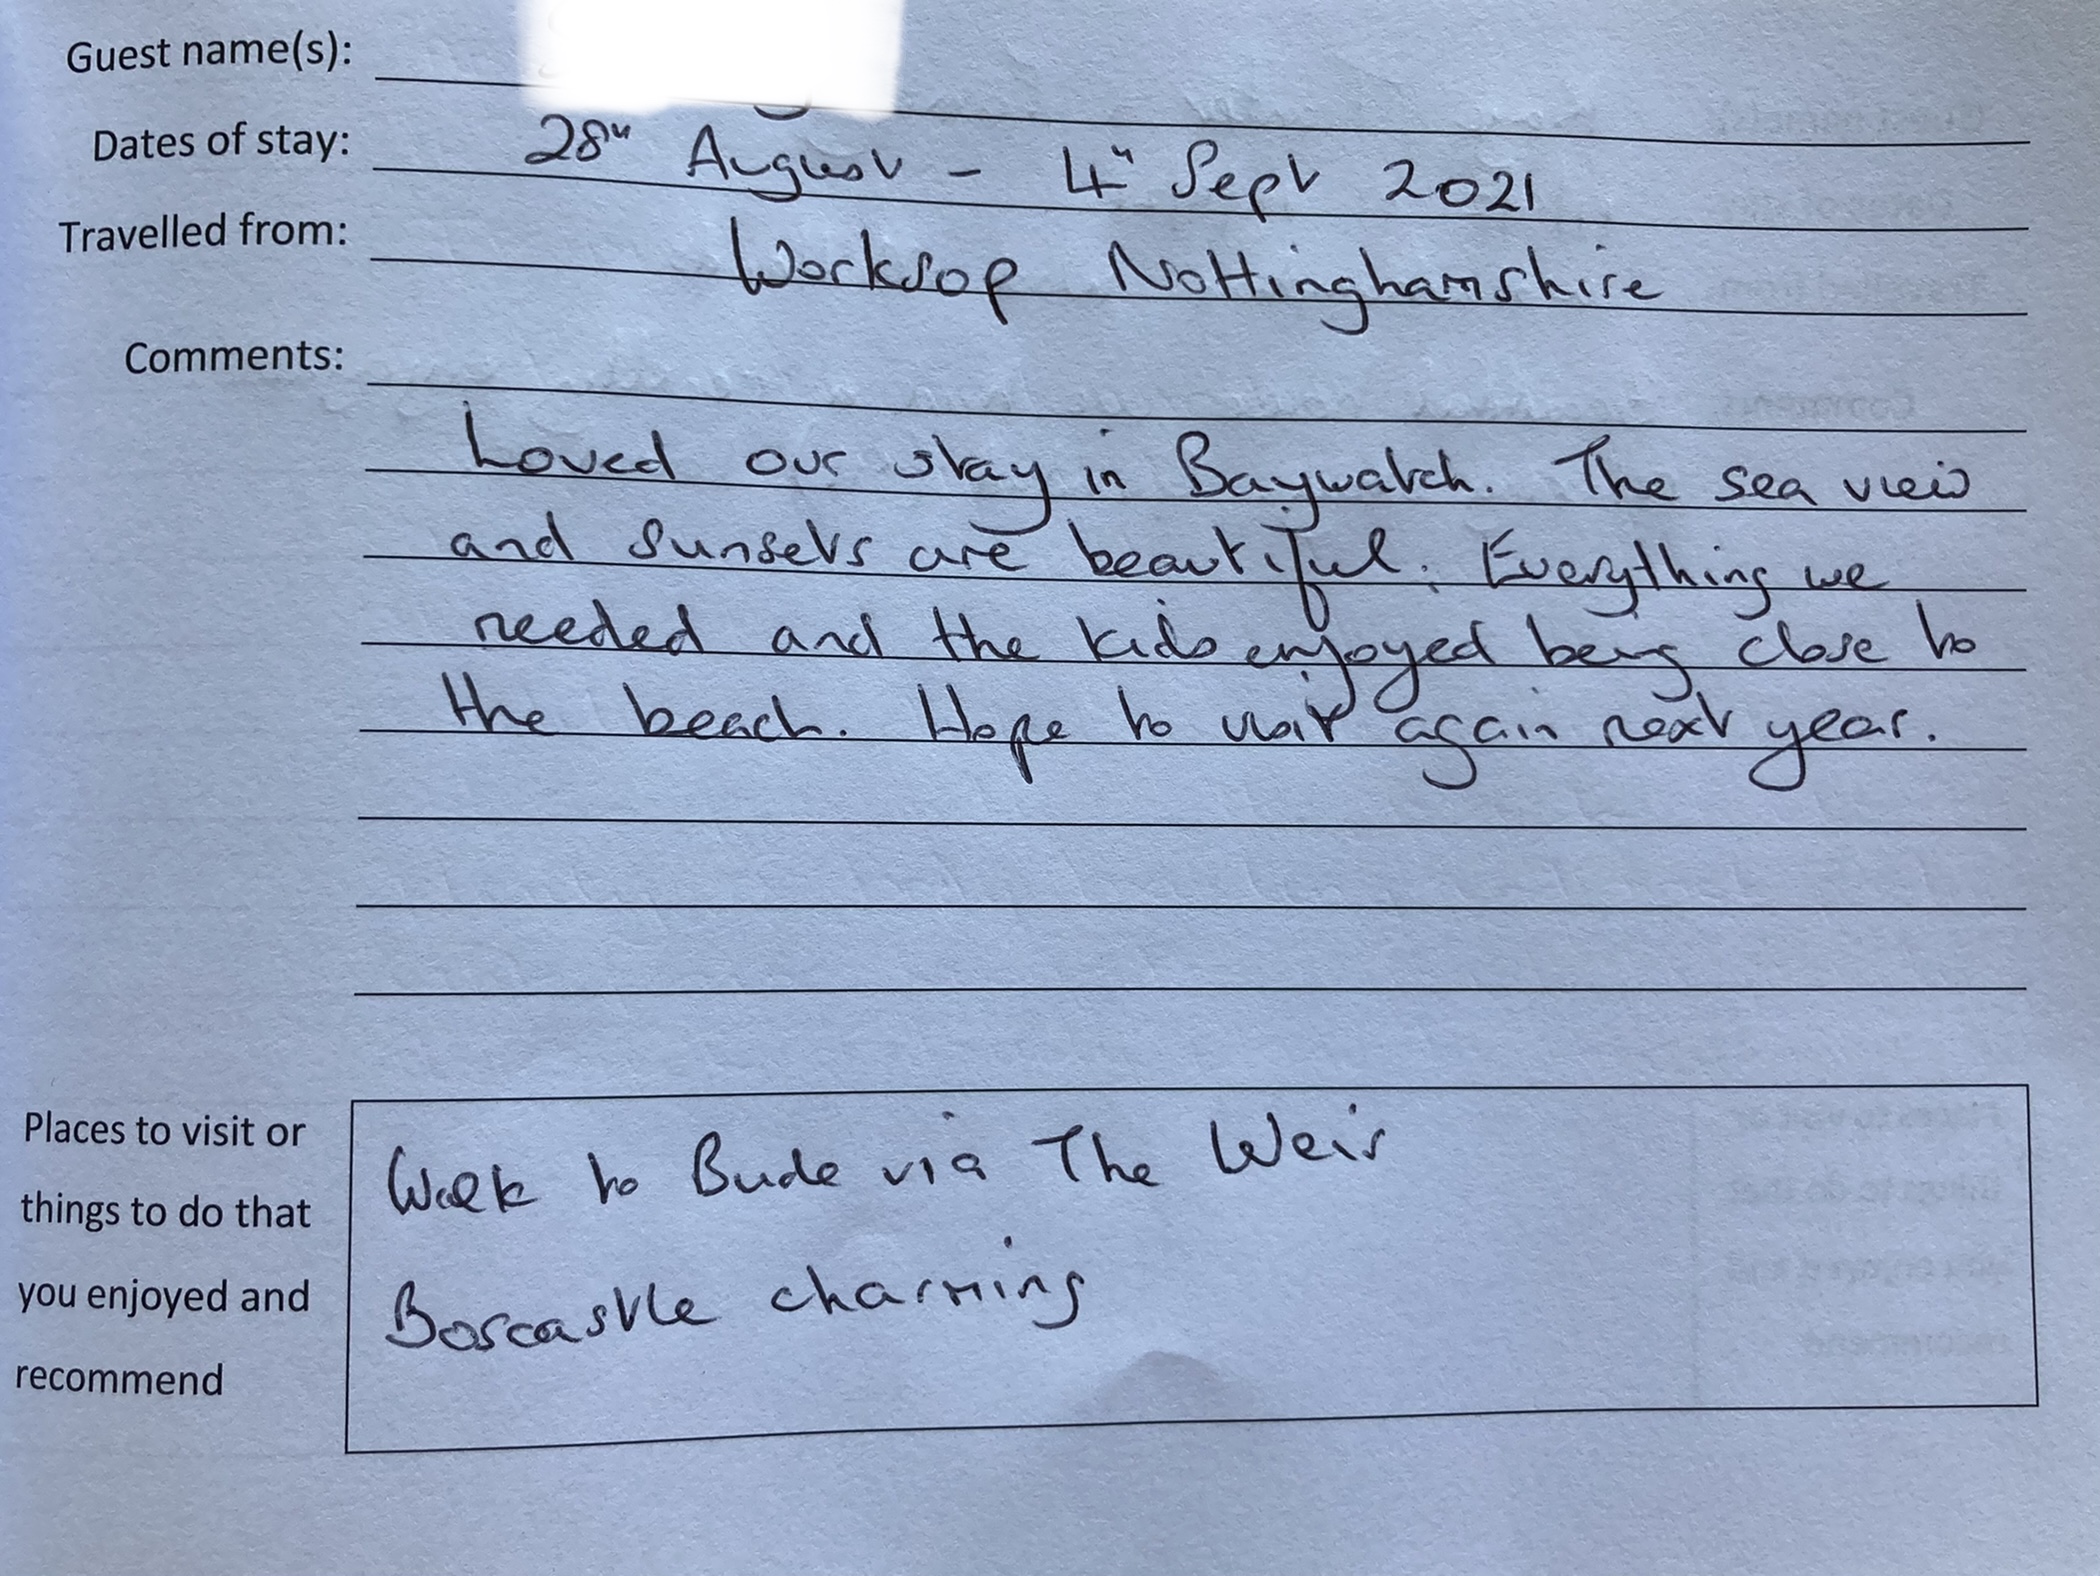 Guest name(s):
Dates of stay: 28th August - 4th Sept 2021
Travelled from: Worksop Nottinghamshire
Comments:
Loved our stay in Baywatch. The sea view
and sunsets are beautiful. Everything we
needed and the kids enjoyed being close to
the beach. Hope to visit again next year.
Places to visit or
things to do that
you enjoyed and
recommend
Walk to Bude via The Weir
Boscastle charming